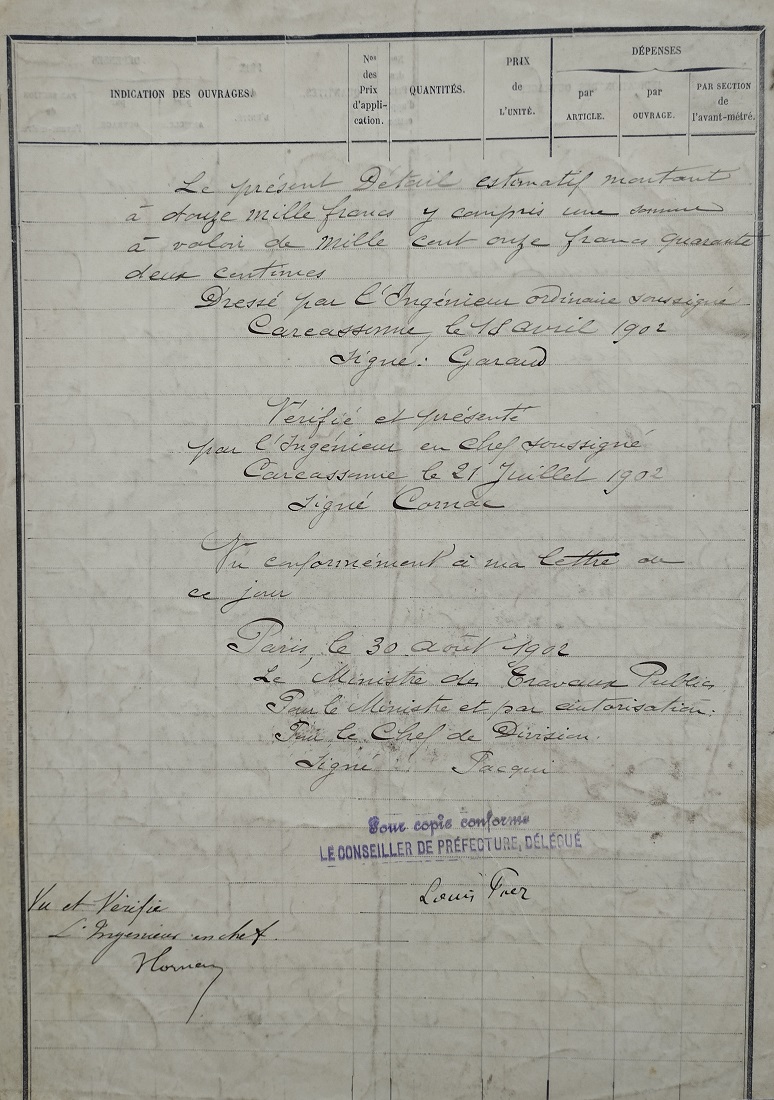 INDICATION DES OUVRAGES.
Nos des Prix d'appli-cation.
QUANTITÉS.
PRIX de L'UNITÉ.
DÉPENSES
par ARTICLE.
par OUVRAGE.
PAR SECTION de l'avant-métré.
Le présent Détail estimatif montant
à douze mille francs y compris une somme
à valoir de mille cent onze francs quarante
deux centimes
Dressé par l'Ingénieur ordinaire soussigné
Carcassonne, le 18 avril 1902
Signé: Garaud
Vérifié et présenté
par l'Ingénieur en chef soussigné
Carcassonne le 21 Juillet 1902
Signé Cornac
Vu conformément à ma lettre de
ce jour
Paris, le 30 août 1902
Le Ministre des Travaux Publics
Pour le Ministre et par autorisation:
Pour le Chef de Division.
Signé: Pacqui
Pour copie conforme
LE CONSEILLER DE PRÉFECTURE, DÉLÉGUÉ
Louis
Vu et Vérifié
L'Ingénieur en chef.